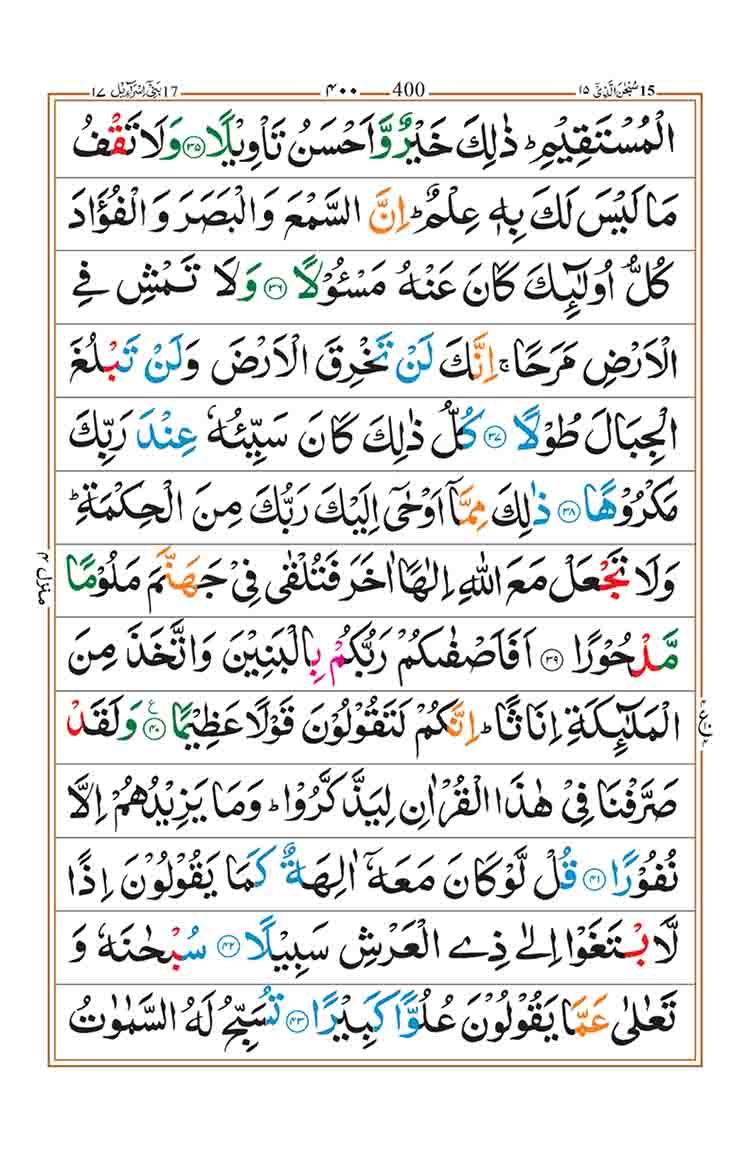 سُبْحٰنَ الَّذِیْۤ ١٥ 15 400 ٤٠٠ بَنِیْۤ اِسْرَآءِیْل ١٧ 17
الْمُسْتَقِیْمِ ؕ ذٰلِكَ خَیْرٌ وَّاَحْسَنُ تَاْوِیْلًا ﴿۳۵﴾ وَلَا تَقْفُ
مَا لَیْسَ لَكَ بِهٖ عِلْمٌ ؕ اِنَّ السَّمْعَ وَالْبَصَرَ وَالْفُؤَادَ
كُلُّ اُولٰٓئِكَ كَانَ عَنْهُ مَسْئُوْلًا ﴿۳۶﴾ وَلَا تَمْشِ فِی
الْاَرْضِ مَرَحًا ۚ اِنَّكَ لَنْ تَخْرِقَ الْاَرْضَ وَلَنْ تَبْلُغَ
الْجِبَالَ طُوْلًا ﴿۳۷﴾ كُلُّ ذٰلِكَ كَانَ سَیِّئُهٗ عِنْدَ رَبِّكَ
مَكْرُوْهًا ﴿۳۸﴾ ذٰلِكَ مِمَّاۤ اَوْحٰۤی اِلَیْكَ رَبُّكَ مِنَ الْحِكْمَةِ ؕ
وَلَا تَجْعَلْ مَعَ اللّٰهِ اِلٰهًا اٰخَرَ فَتُلْقٰی فِیْ جَهَنَّمَ مَلُوْمًا
مَّدْحُوْرًا ﴿۳۹﴾ اَفَاَصْفٰىكُمْ رَبُّكُمْ بِالْبَنِیْنَ وَاتَّخَذَ مِنَ
الْمَلٰٓئِكَةِ اِنَاثًا ؕ اِنَّكُمْ لَتَقُوْلُوْنَ قَوْلًا عَظِیْمًا ﴿۴۰﴾ ع وَلَقَدْ
صَرَّفْنَا فِیْ هٰذَا الْقُرْاٰنِ لِیَذَّكَّرُوْا ؕ وَمَا یَزِیْدُهُمْ اِلَّا
نُفُوْرًا ﴿۴۱﴾ قُلْ لَّوْ كَانَ مَعَهٗۤ اٰلِهَةٌ كَمَا یَقُوْلُوْنَ اِذًا
لَّابْتَغَوْا اِلٰی ذِی الْعَرْشِ سَبِیْلًا ﴿۴۲﴾ سُبْحٰنَهٗ وَ
تَعٰلٰی عَمَّا یَقُوْلُوْنَ عُلُوًّا كَبِیْرًا ﴿۴۳﴾ تُسَبِّحُ لَهُ السَّمٰوٰتُ
منزل ۴